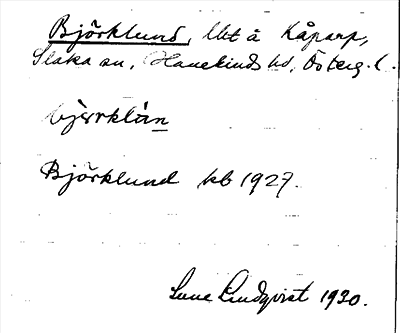 Björklund, lht å Kåparp,
Slaka sn, Hanekinds hd, Österg. l.
bjærrklån
Björklund kb 1927.
Sune Lindqvist 1930.